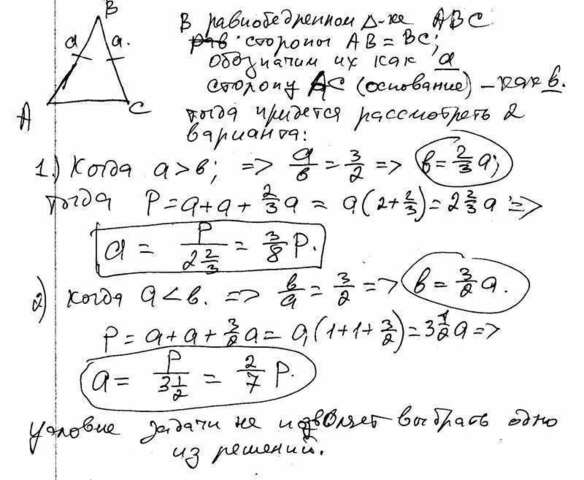 B
a a
A C
В равнобедренном Δ-ке ABC
стороны AB = BC;
обозначим их как a
сторону AC (основание) – как в.
тогда придется рассмотреть 2
варианта:
1.) Когда a > в; => a/в = 3/2 => в = 2/3 a;
тогда P = a + a + 2/3 a = a(2 + 2/3) = 2 2/3 a =>
a = P / 2 2/3 = 3/8 P.
2) Когда a < в. => в/a = 3/2 => в = 3/2 a.
P = a + a + 3/2 a = a(1 + 1 + 3/2) = 3 1/2 a =>
a = P / 3 1/2 = 2/7 P.
условие задачи не позволяет выбрать одно
из решений.